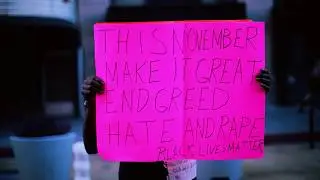 THIS NOVEMBER
MAKE IT GREAT
END GREED
HATE AND RAPE
BLACK LIVES MATTER